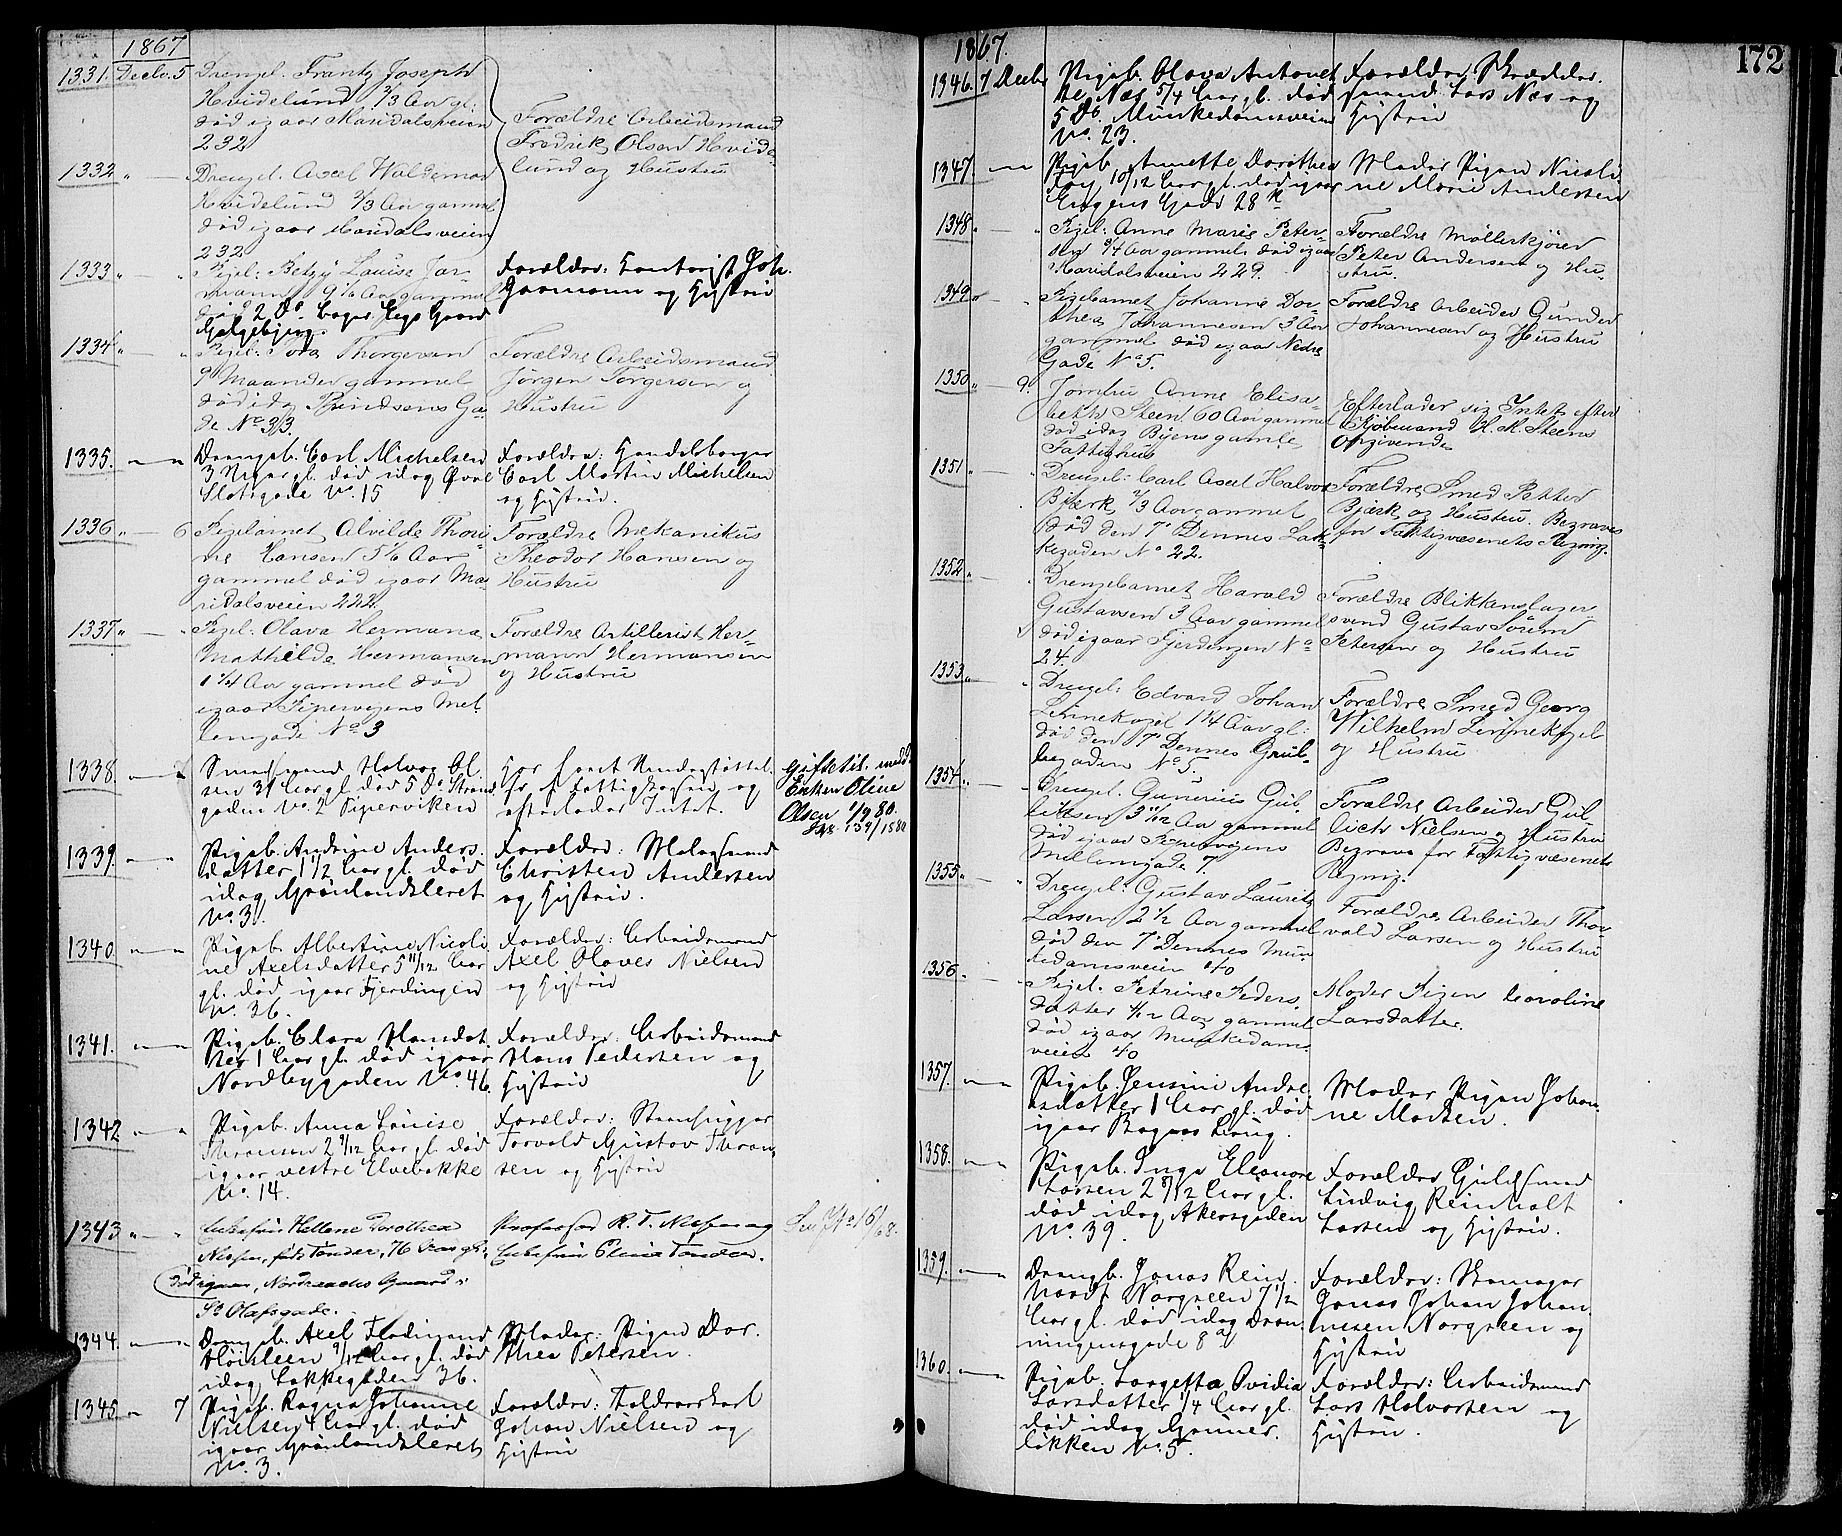 1867
1331. Decbr. 5 Drengeb. Frantz Joseph
Hvidelund, 2/3 Aar gl.
død igaar Maridalsveien
232
Forældre Arbeidsmand
Fredrik Olsen Hvide-
lund og Hustru
1332 " — Drengeb. Axel Valdemar
Hvidelund 2/3 Aar gammel
død igaar Maridalsveien
232
1333 " — " Pigeb: Betzy Louise Gar-
mann 9 1/2 Aar gammel
død 2 ds.
Forældre: Contorist Joh.
Garmann og Hustru
1334 " — " Pigeb: Tora Thorgersen
9 Maaneder gammel
død idag Bindsens Ga-
de No 33.
Forældre Arbeidsmand
Jørgen Torgersen og
Hustru
1335. — " Drengeb. Carl Michelsen
3 Uger gl. død idag Øvre
Slotsgade No. 15
Forældre: Handelsborger
Carl Martin Michelsen
og Hustru.
1336 " — 6 Pigebarnet Alvilde Thori-
ne Hansen 5 1/6 Aar
gammel død igaar Ma-
ridalsveien 222.
Forældre Mekanikus
Theodor Hansen og
Hustru
1337 " — " Pigeb: Olava Hermana
Mathilde Hermansen
1 1/4 Aar gammel død
igaar Pipervigens Mel-
lemgade No 3
Forældre Artillerist Her-
mann Hermansen
og Hustru
1338. — " Smedsvend Halvor Ol-
sen 31 Aar gl. død 5 ds. Strand
gaden No. 2 Piperviken
Har havt Understøttel-
se af Fattigkassen og
efterlader Intet.
Gifttil. medd.
Enken Oline
Olsen 1/9 80.
134/1880
1339. — " Pigeb. Andrine Anders-
datter 1 1/2 Aar gl. død
idag Grønlandsleret
No. 3.
Forældre: Malersvend
Christen Andersen
og Hustru.
1340. — " Pigeb. Albertine Nicoli-
ne Axelsdatter 5 11/12 Aar
gl. død igaar Fjerdingen
No. 36.
Forældre: Arbeidsmand
Axel Olaves Nielsen
og Hustru
1341. — " Pigeb. Clara Hansdat-
ter 1 Aar gl. død igaar
Nordbygaden No. 46.
Forældre: Arbeidsmand
Hans Pedersen og
Hustru
1342 — " Pigeb. Anna Louise
Thransen 2 9/12 Aar gl. død
igaar vestre Elvebakke
No. 14.
Forældre: Stenhugger
Torvald Gustav Thran-
sen og Hustru
1343 " — " Enkefru Hellene Dorothea
Nissen, født Tander, 76 Aar gl.
død igaar, Gaard i
St Olafsgade.
Professor R. T. Nissen og
Enkefrue
No 16/68.
1344. — " Drengeb. Axel Ferdinand
9/12 Aar gl. død
idag Løkkegaden 36.
Moder: Pigen Dor-
thea Petersen.
1345 " 7 Pigeb. Ragna Johanne
Nielsen 4 Aar gl. død
igaar Grønlandsleret
No. 3.
Forældre: Toldroerskarl
Johan Nielsen og
Hustru
172
1867.
1346. 7 Decbr Pigeb. Olava Antonet-
te Næs 5/4 Aar gl. død
5 ds. Munkedamsveien
No. 23.
Forældre: Skrædder-
svend Lars Næs og
Hustru
1347. — " Pigeb. Annette Dorothea
Foy 10/12 Aar gl. død igaar
Engens Gade 28
Moder Pigen Nicoli-
ne Marie Andersen
1348 — " Pigeb. Anne Marie Peter-
sen 9/4 Aar gammel død igaar
Maridalsveien 229.
Forældre Møllerkjører
Peter Andersen og Hu-
stru.
1349 " — " Pigebarnet Johanne Dor-
thea Johannesen 3 Aar
gammel død igaar Nedre
Gade No 5.
Forældre Arbeider Gunder
Johannesen og Hustru
1350 " — 9. Jomfru Anne Elisa-
beth Steen 60 Aar gammel
død idag Byens gamle
Fattighus
Efterlader sig Intet efter
Kjøbmand H. M. Steens
Opgivende
1351 " — " Drengeb: Carl Axel Halvor
Bjærk 2/3 Aar gammel
død den 7de Dennes Lak-
kegaden No 22.
Forældre Smed Petter
Bjærk og Hustru. Begraves
for Fattigvæsenets Regning.
1352 — " Drengebarnet Harald
Gustavsen 3 Aar gammel
død igaar Fjerdingen No
24.
Forældre Blikkenslager-
svend Gustav Sørum
Petersen og Hustru
1353 " — " Drengeb: Edvard Johan
Linnekogel 1 1/4 Aar gl:
død den 7de Dennes Grub-
begaden No 5.
Forældre Smed Georg
Wilhelm Linnekogel
og Hustru
1354 " — " Drengeb. Gunerius Gul-
liksen 3 11/12 Aar gammel
død igaar Pipervigens
Mellemgade 7.
Forældre Arbeider Gul-
lick Nielsen og Hustru
Begraves for Fattigvæsenets
Regning.
1355 " — " Drengeb: Gustav Laurits
Larsen 2 1/2 Aar gammel
død den 7de Dennes Mun-
kedamsveien 40
Forældre Arbeider Thor-
vald Larsen og Hustru
1356 — " Pigeb. Petrine Peders-
datter 4/12 Aar gammel
død igaar Munkedams-
veien 40
Moder Pigen Caroline
Larsdatter.
1357. — " Pigeb. Jensine Andre-
asdatter 1 Aar gl. død
igaar Bagaas Løng.
Moder Pigen Johan-
ne Madsen.
1358. — " Pigeb. Inga Eleonore
Larsen 2 8/12 Aar gl.
død idag Akersgaden
No. 39.
Forældre Guldsmed
Ludvig Reinholt
Larsen og Hustru.
1359. — " Drengeb. Jonas Rein-
hardt Norgreen 7 1/2
Aar gl. død idag Dron-
ningensgade 8 a
Forældre: Skomager
Jonas Johan Johan-
nesen Norgreen og
Hustru
1360. — " Pigeb. Ovidia
Larsdatter 1/4 Aar gl.
død idag Grüner-
løkken No. 5
Forældre: Arbeidsmand
Lars Halvorsen og
Hustru.